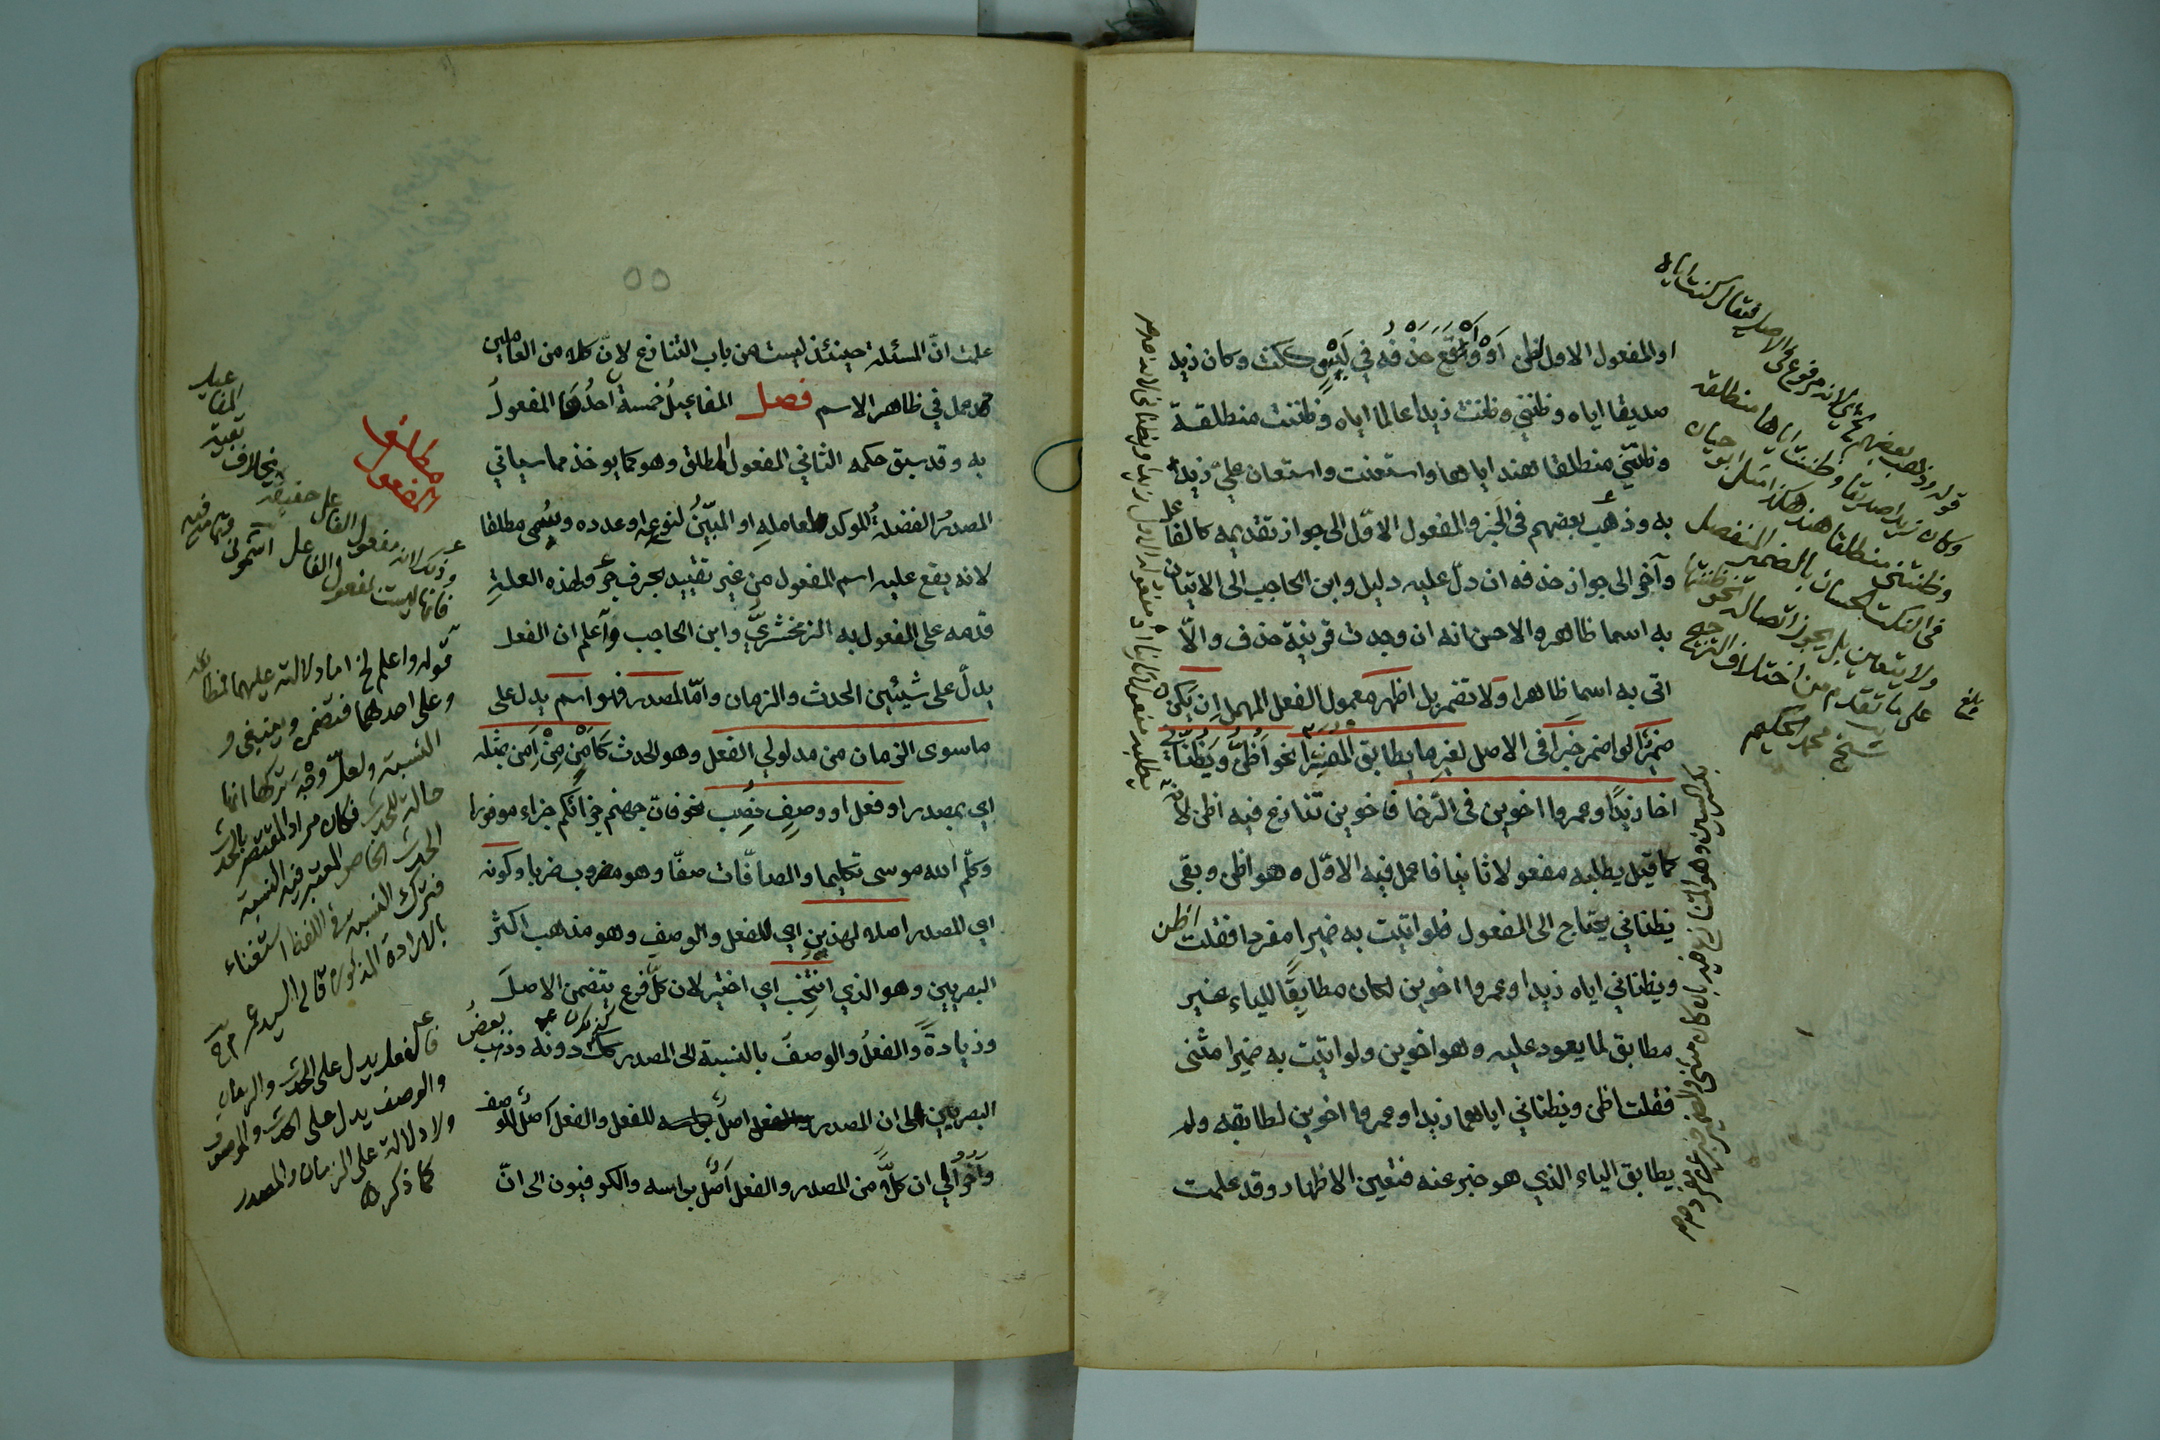 او المفعول الاول لظن او اوقع حذفه في لبس ككنت وكان زيد
صديقا اياه وظنني وظننت زيدا عالما اياه وظننت منطلقة
وظنتني منطلقا هند اياها واستعنت واستعان عليّ زيد
به وذهب بعضهم في الخبر والمفعول الاوّل الى جواز تقديمه كالفاعل
وآخر الى جواز حذفه ان دلّ عليه دليل وابن الحاجب الى الاتيان
به اسما ظاهرا والاحسن انه ان وجدت قرينة حذف والّا
اتى به اسما ظاهرا ولا تضمر بل اظهر معمول الفعل المهمل ان يكن
ضمير لو اضمر خبرا في الاصل لغير ما يطابق المفسرا نحو اظنّ ويظنّاني
اخا زيدا وعمروا اخوين في الرخا فاخوين تنازع فيه اظن لانه
كما قيل يطلبه مفعولا ثانيا فاعمل فيه الاوّل وهو اظن وبقي
يظناني يحتاج الى المفعول فلو اتيت به ضميرا مفردا فقلت اظن
ويظناني اياه زيدا وعمروا اخوين لكان مطابقا للياء غير
مطابق لما يعود عليه وهو اخوين ولو اتيت به ضميرا مثنى
فقلت اظن ويظناني اياهما زيدا وعمروا اخوين لطابقه ولم
يطابق الياء الذي هو خبر عنه فتعين الاظهار وقد علمت
قوله وذهب بعضهم
فيقال كنت اياه
وكان زيد صديقا وظننت اياها منطلقة
وظنتني منطلقا هند هكذا مثل ابو حيان
في النكت الحسان بالضمير المنفصل
ولا يتعين بل يجوز اتصاله نحو ظننتها
على ما تقدم من اختلاف الترجيح
شيخ محمد الحكيم
بلغ
٥٥
علمت انّ المسئلة حينئذ ليست من باب التنازع لانّ كلا من العاملين
قد عمل في ظاهر الاسم فصل المفاعيل خمسة احدها المفعول
به وقد سبق حكمه الثاني المفعول المطلق وهو كما يوخذ مما سياتي
المصدر الفضلة الموكد لعامله او المبيّن لنوعه او عدده ويسمى مطلقا
لانه يقع عليه اسم المفعول من غير تقييد بحرف جر ولهذه العلة
قدمه على المفعول به الزمخشريّ وابن الحاجب واعلم ان الفعل
يدلّ على شيئين الحدث والزمان وامّا المصدر فهو اسم يدل على
ما سوى الزمان من مدلولي الفعل وهو الحدث كامن من امن بمثله
اي بمصدر او فعل او وصف نصب نحو فان جهنم جزاؤكم جزاء موفورا
وكلّم الله موسى تكليما والصافّات صفّا وهو مضروب ضربا وكونه
اي المصدر اصلا لهذين اي للفعل والوصف وهو مذهب اكثر
البصريين وهو الذي انتخب اي اختير لان كلّ فرع يتضمن الاصل
وزيادة والفعل والوصف بالنسبة الى المصدر كذلك دونه وذهب بعض
البصريين الى ان المصدر اصل للفعل والفعل اصل للوصف
وآخر الى ان كلّا من المصدر والفعل اصل براسه والكوفيون الى انّ
المفعول
مطلق
بخلاف بقية المفاعيل
وذلك لانه مفعول الفاعل حقيقة
فانها ليست بمفعول الفاعل اشموني
قوله واعلم الخ اما دلالته عليهما فمطابقة
وعلى احدهما فتضمن وينبغي و
النسبة ولعلّ وجه تركها انها
حالة للحدث فكان مراد المقتصر بالحدث
الحدث الخاص المعتبر فيه النسبة
فترك النسبة في اللفظ استغناء
بالارادة المذكورة قاله السيد عمر
فالفعل يدل على الحدث والزمان
والوصف يدل على الحدث والموصوف
ولا دلالة على الزمان والمصدر
كما ذكره